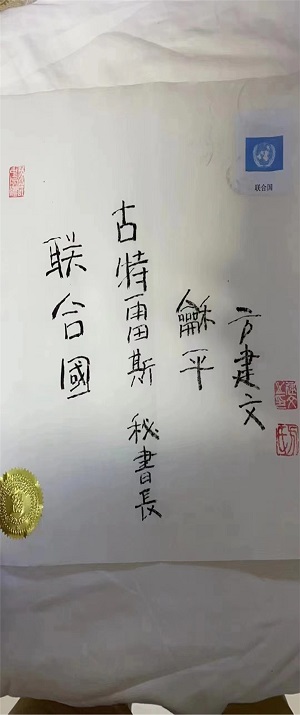 联合国
方建文
龢平
古特雷斯 秘書長
联合國